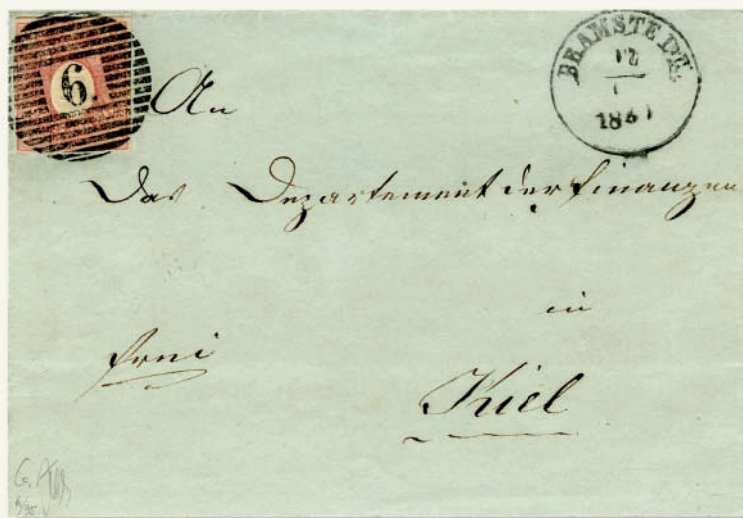 6
BRAMSTEDT.
An
Das Departement der Finanzen
in
frei
Kiel